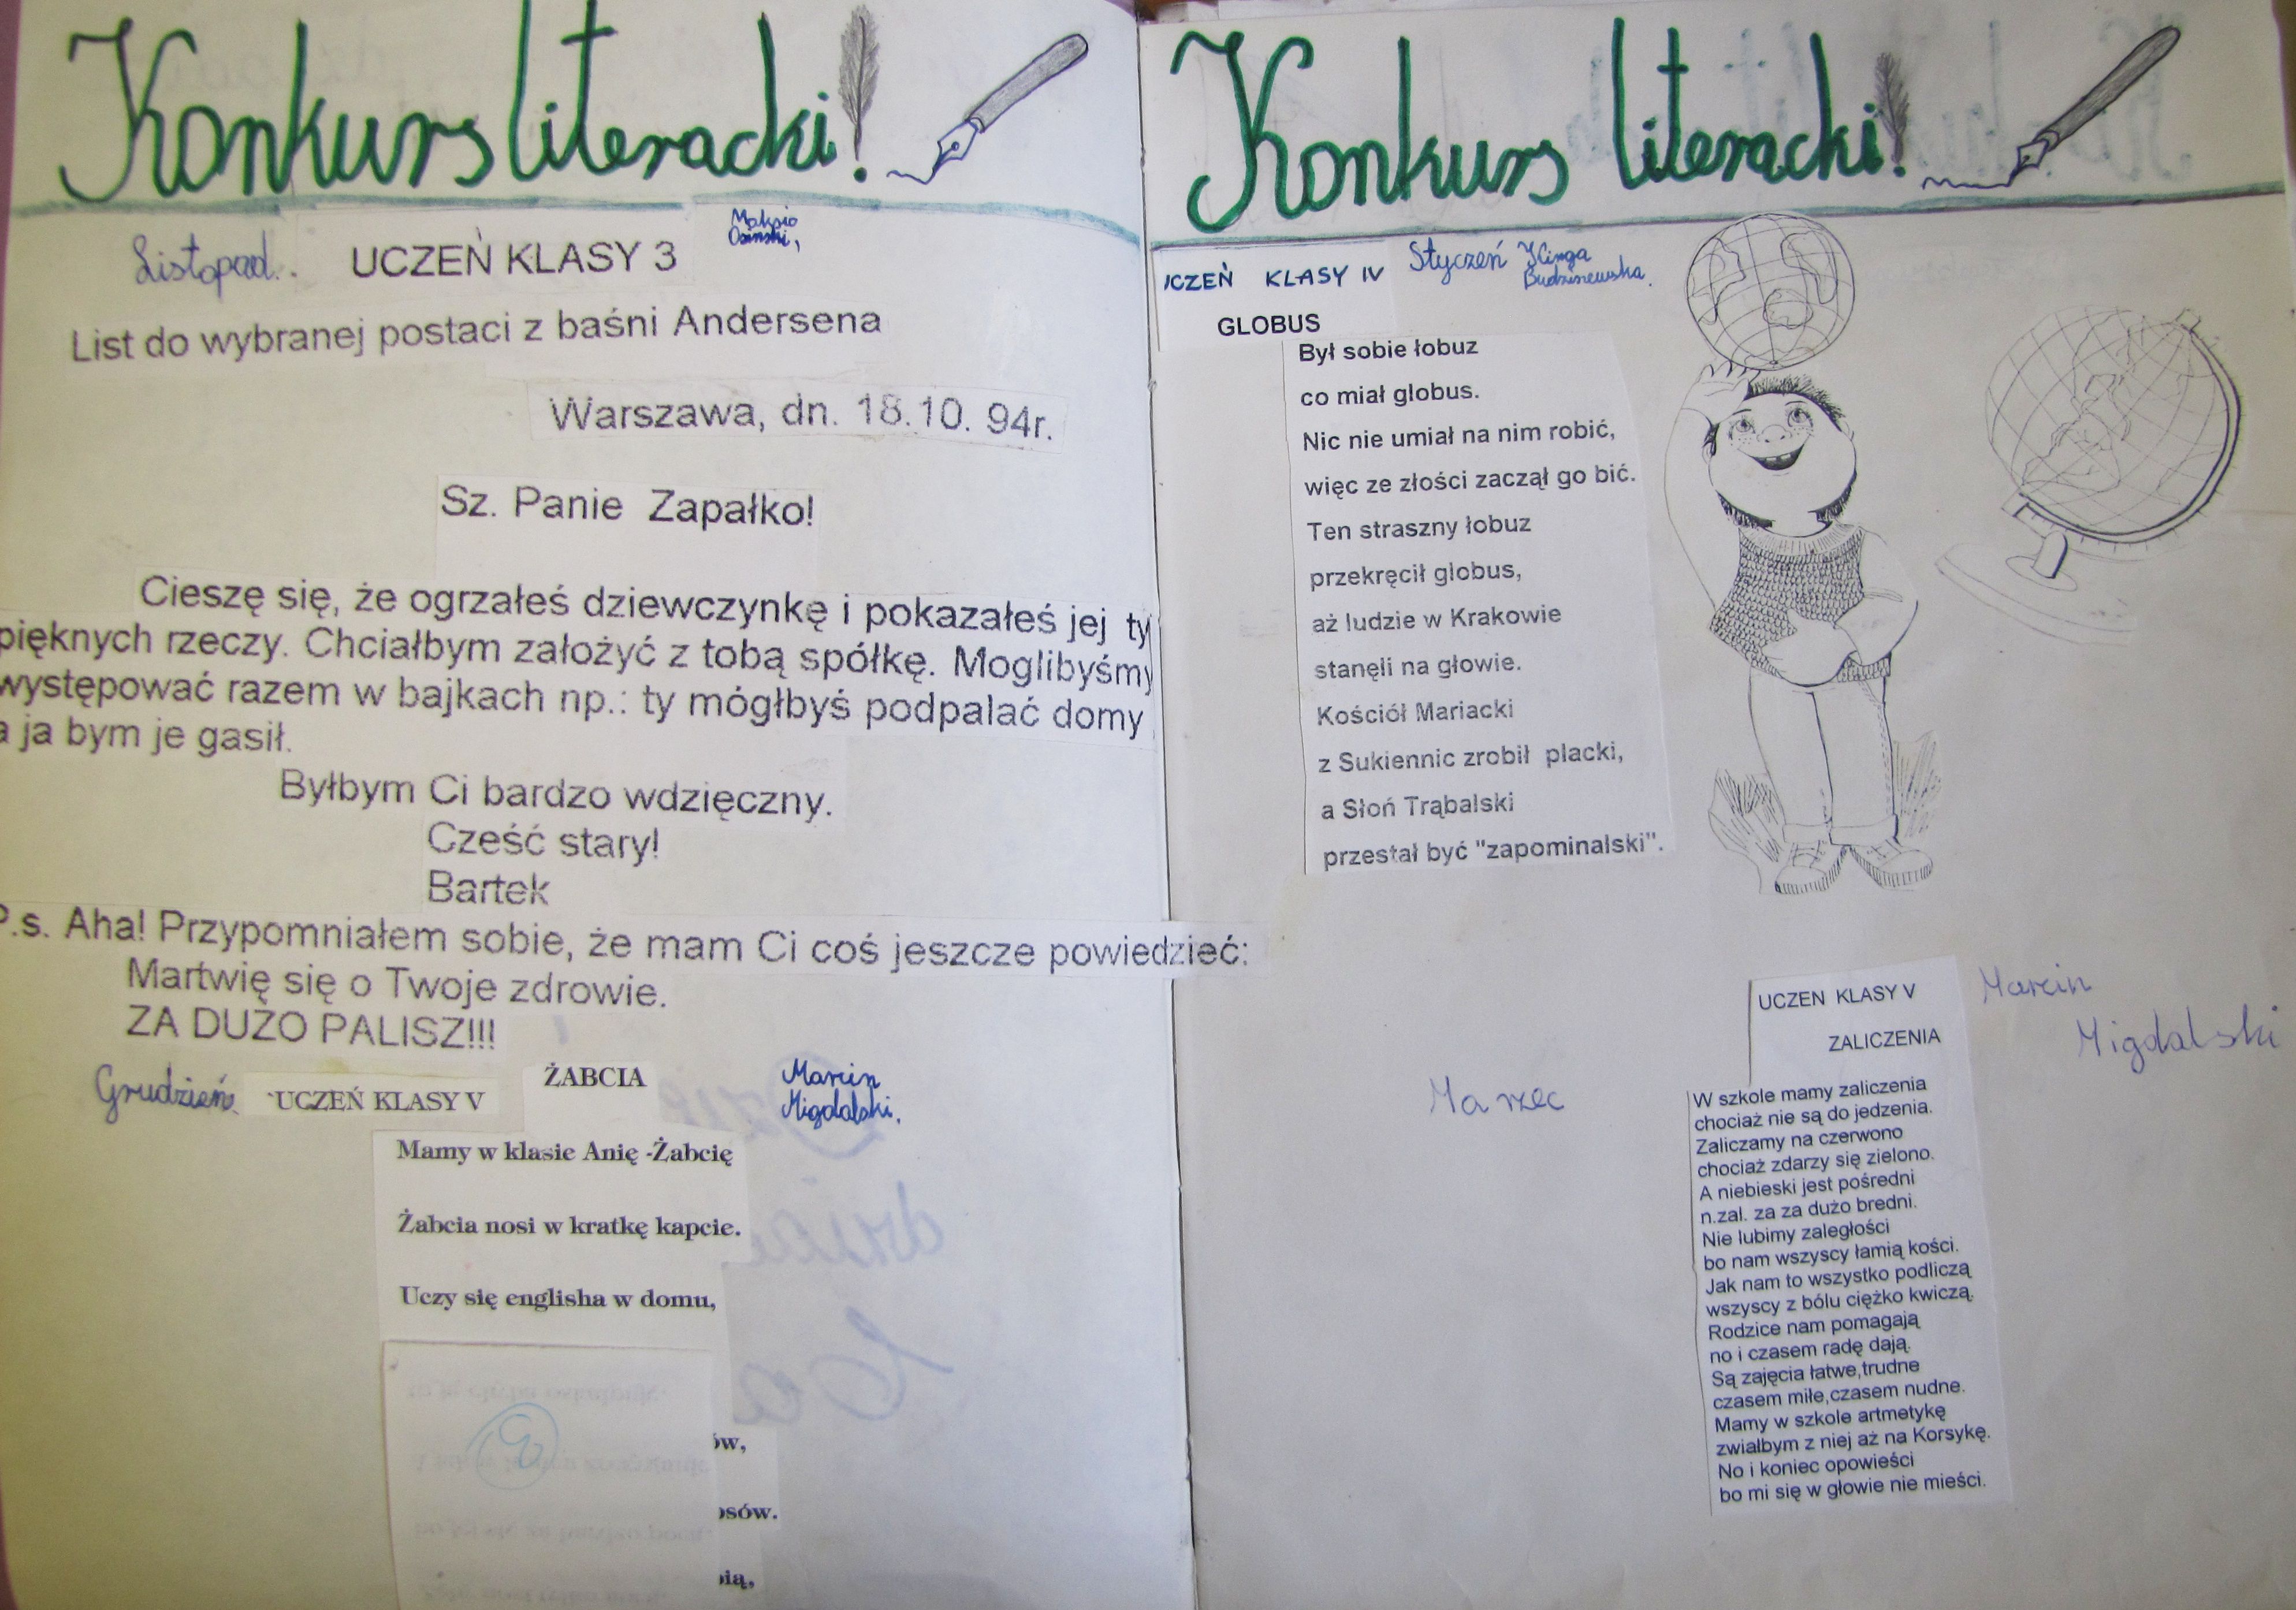 Konkurs literacki!
Listopad. UCZEŃ KLASY 3 Maksio
Osinski,
List do wybranej postaci z baśni Andersena
Warszawa, dn. 18.10. 94r.
Sz. Panie Zapałko!
Cieszę się, że ogrzałeś dziewczynkę i pokazałeś jej ty
pięknych rzeczy. Chciałbym założyć z tobą spółkę. Moglibyśmy
występować razem w bajkach np.: ty mógłbyś podpalać domy
a ja bym je gasił.
Byłbym Ci bardzo wdzięczny.
Cześć stary!
Bartek
P.s. Aha! Przypomniałem sobie, że mam Ci coś jeszcze powiedzieć:
Martwię się o Twoje zdrowie.
ZA DUŻO PALISZ!!!
Grudzień. UCZEŃ KLASY V ŻABCIA Marcin
Migdalski.
Mamy w klasie Anię -Żabcię
Żabcia nosi w kratkę kapcie.
Uczy się englisha w domu,
ów,
osów.
ią,
Konkurs literacki!
UCZEŃ KLASY IV Styczeń Kinga
Budziszewska.
GLOBUS
Był sobie łobuz
co miał globus.
Nic nie umiał na nim robić,
więc ze złości zaczął go bić.
Ten straszny łobuz
przekręcił globus,
aż ludzie w Krakowie
stanęli na głowie.
Kościół Mariacki
z Sukiennic zrobił placki,
a Słoń Trąbalski
przestał być "zapominalski".
Marzec
UCZEN KLASY V Marcin
Migdalski
ZALICZENIA
W szkole mamy zaliczenia
chociaż nie są do jedzenia.
Zaliczamy na czerwono
chociaż zdarzy się zielono.
A niebieski jest pośredni
n.zal. za za dużo bredni.
Nie lubimy zaległości
bo nam wszyscy łamią kości.
Jak nam to wszystko podliczą
wszyscy z bólu ciężko kwiczą.
Rodzice nam pomagają
no i czasem radę dają.
Są zajęcia łatwe,trudne
czasem miłe,czasem nudne.
Mamy w szkole artmetykę
zwiałbym z niej aż na Korsykę.
No i koniec opowieści
bo mi się w głowie nie mieści.